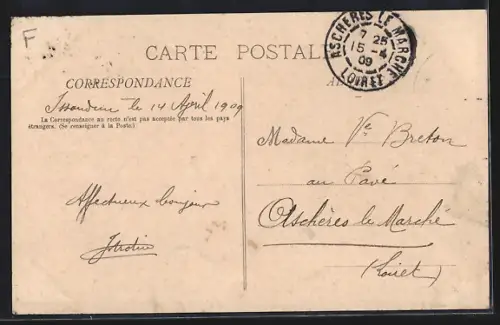 F
CARTE POSTALE
ASCHERES LE MARCHE
7 25
15 -4
09
LOIRET
CORRESPONDANCE
Issoudun le 14 April 1909
La Correspondance au recto n'est pas acceptée par tous les pays
étrangers. (Se renseigner à la Poste.)
Madame Ve Breton
au Pavé
Aschères le Marché
(Loiret)
Affectueux bonjour